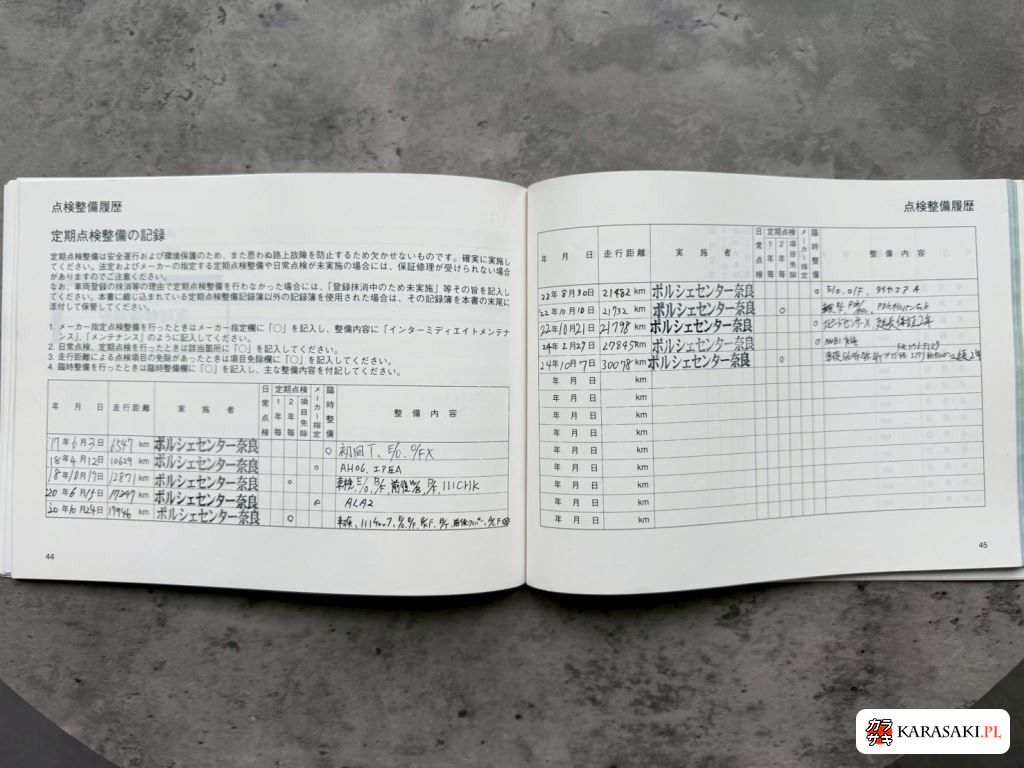 点検整備履歴
定期点検整備の記録
定期点検整備は安全運行および環境保護のため、また思わぬ路上故障を防止するため欠かせないものです。確実に実施し
てください。法定およびメーカーの指定する定期点検整備や日常点検が未実施の場合には、保証修理が受けられない場合
がありますのでご注意ください。
なお、車両登録の抹消等の理由で定期点検整備を行わなかった場合には、「登録抹消中のため未実施」等その旨を記入し
てください。本書に綴じ込まれている定期点検整備記録簿以外の記録簿を使用された場合は、その記録簿を本書の末尾に
添付して保管してください。
1. メーカー指定点検整備を行ったときはメーカー指定欄に「○」を記入し、整備内容に「インターミディエイトメンテナ
ンス」、「メンテナンス」のように記入してください。
2. 日常点検、定期点検を行ったときは該当箇所に「○」を記入してください。
3. 走行距離による点検項目の免除があったときは項目免除欄に「○」を記入してください。
4. 臨時整備を行ったときは臨時整備欄に「○」を記入し、主な整備内容を付記してください。
年 月 日 走行距離 実施者 日常点検 定期点検 1年毎 2年毎 項目免除 メーカー指定 臨時整備 整備内容
17年6月3日 1547 km ポルシェセンター奈良 ○ 初回T、E/O、O/FX
18年4月12日 10629 km ポルシェセンター奈良 ○ AH06、エアEA
18年10月19日 12871 km ポルシェセンター奈良 ○ 車検、E/O、111CHK
20年6月15日 17247 km ポルシェセンター奈良 ○ ALA2
20年10月24日 17946 km ポルシェセンター奈良 ○ 車検、111チェック
44
点検整備履歴
年 月 日 走行距離 実施者 日常点検 定期点検 1年毎 2年毎 項目免除 メーカー指定 臨時整備 整備内容
22年8月30日 21482 km ポルシェセンター奈良 ○ E/O、O/F
22年10月10日 21732 km ポルシェセンター奈良 ○
22年10月21日 21798 km ポルシェセンター奈良 ○ 延長保証2年
24年2月29日 27845 km ポルシェセンター奈良 ○ 実施
24年10月7日 30078 km ポルシェセンター奈良 ○ 車検
年 月 日 km
年 月 日 km
年 月 日 km
年 月 日 km
年 月 日 km
年 月 日 km
年 月 日 km
年 月 日 km
年 月 日 km
45
カラサキ KARASAKI.PL